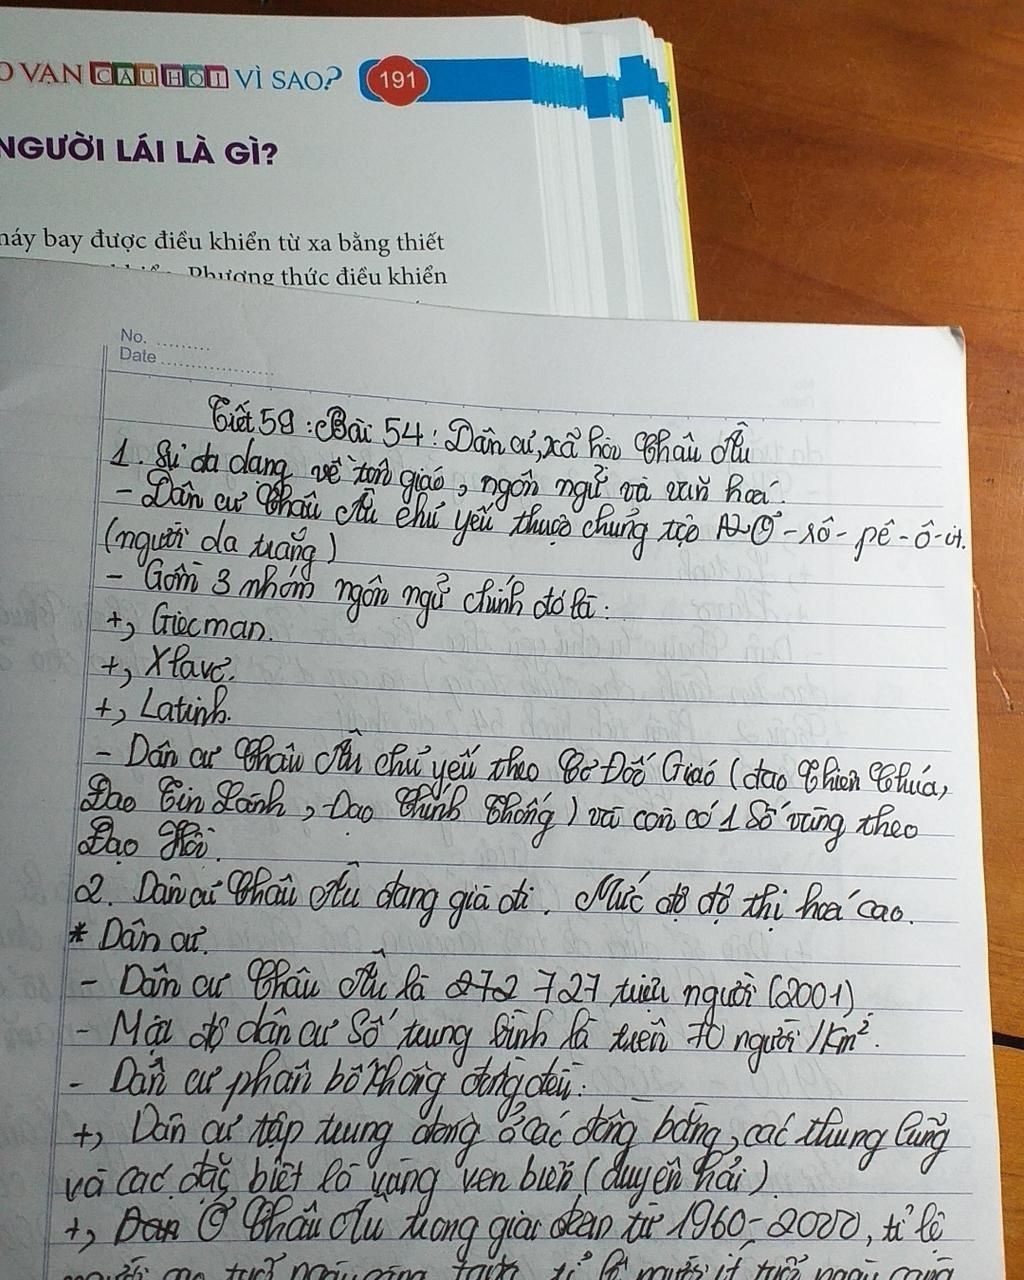 VẠN CÂU HỎI VÌ SAO? 191
NGƯỜI LÁI LÀ GÌ?
máy bay được điều khiển từ xa bằng thiết
Phương thức điều khiển
No. .........
Date ...................
Tiết 58 : Bài 54 : Dân cư, xã hội Châu Âu
1. Sự đa dạng về tôn giáo, ngôn ngữ và văn hoá.
- Dân cư Châu Âu chủ yếu thuộc chủng tộc Ơ - rô - pê - ô - it.
(người da trắng)
- Gồm 3 nhóm ngôn ngữ chính đó là :
+, Giecman.
+, Xlavơ.
+, Latinh.
- Dân cư Châu Âu chủ yếu theo Cơ Đốc Giáo (đạo Thiên Chúa,
Đạo Tin Lành, Đạo Chính Thống) và còn có 1 số vùng theo
Đạo Hồi.
2. Dân cư Châu Âu đang già đi. Mức độ đô thị hoá cao.
* Dân cư.
- Dân cư Châu Âu là 272 727 triệu người (2001).
- Mật độ dân cư số trung bình là trên 70 người /Km².
- Dân cư phân bố không đồng đều :
+, Dân cư tập trung đông ở các đồng bằng, các thung lũng
và các đặc biệt là vùng ven biển (duyên hải).
+, Dan Ở Châu Âu trong giai đoạn từ 1960 - 2000, tỉ lệ
người tuổi ngày càng tỉ lệ người ít tuổi ngày càng